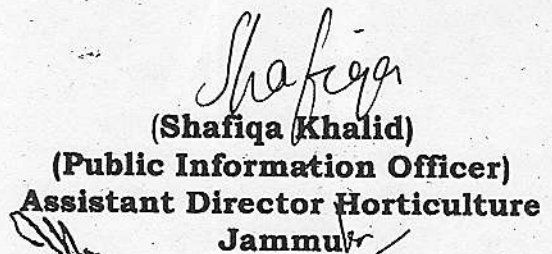 Shafiqa
(Shafiqa Khalid)
(Public Information Officer)
Assistant Director Horticulture
Jammu